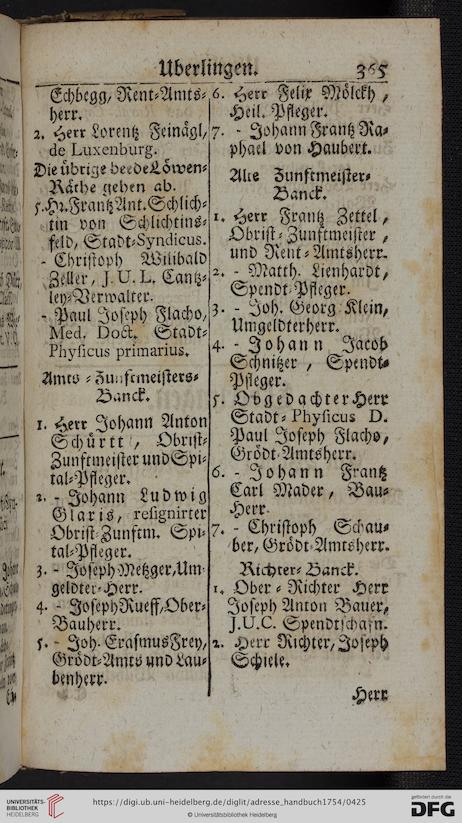 Uberlingen. 365
Echbegg, Rent-Amts-
herr.
2. Herr Lorentz Feinägl,
de Luxenburg.
Die übrige beede Löwen-
Räthe gehen ab.
5. Hr. Frantz Ant. Schlich-
tin von Schlichtins-
feld, Stadt-Syndicus.
- Christoph Wilibald
Zeller, J. U. L. Cantz-
ley-Verwalter.
- Paul Joseph Flacho,
Med. Doct. Stadt-
Physicus primarius.
Amts-Zunftmeisters-
Banck.
1. Herr Johann Anton
Schürtt, Obrist-
Zunftmeister und Spi-
tal-Pfleger.
2. - Johann Ludwig
Glaris, resignirter
Obrist-Zunftm. Spi-
tal-Pfleger.
3. - Joseph Metzger, Um-
geldter-Herr.
4. - Joseph Rueff, Ober-
Bauherr.
5. - Joh. Erasmus Frey,
Grödt-Amts und Lau-
benherr.
6. Herr Felix Mölckh,
Heil. Pfleger.
7. - Johann Frantz Ra-
phael von Haubert.
Alte Zunftmeister-
Banck.
1. Herr Frantz Zettel,
Obrist-Zunftmeister,
und Rent-Amtsherr.
2. - Matth. Lienhardt,
Spendt-Pfleger.
3. - Joh. Georg Klein,
Umgeldterherr.
4. - Johann Jacob
Schnitzer, Spendt-
Pfleger.
5. Obgedachter Herr
Stadt-Physicus D.
Paul Joseph Flacho,
Grödt-Amtsherr.
6. - Johann Frantz
Carl Mader, Bau-
Herr.
7. - Christoph Schau-
ber, Grödt-Amtsherr.
Richter-Banck.
1. Ober-Richter Herr
Joseph Anton Bauer,
J.U.C. Spendtschafn.
2. Herr Richter, Joseph
Schiele.
Herr
UNIVERSITÄTS-
BIBLIOTHEK
HEIDELBERG
https://digi.ub.uni-heidelberg.de/diglit/adresse_handbuch1754/0425
© Universitätsbibliothek Heidelberg
gefördert durch die
DFG